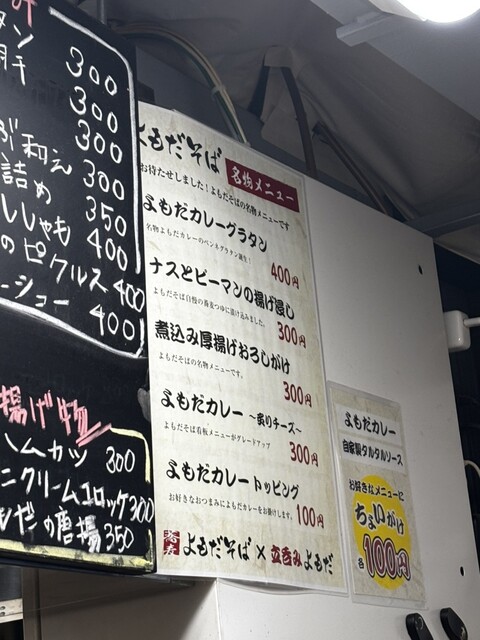 タン 300
肝 300
300
が和え 300
詰め 350
ししゃも 400
のピクルス 400
ーシュー 400
揚げ物
ハムカツ 300
ニクリームコロッケ 300
の唐揚 350
よもだそば 名物メニュー
お待たせしました！よもだそばの名物メニューです
よもだカレーグラタン
名物よもだカレーのペンネグラタン誕生！
400円
ナスとピーマンの揚げ浸し
よもだそば自慢の蕎麦つゆに漬け込みました。
300円
煮込み厚揚げおろしがけ
よもだそばの名物メニューです。
300円
よもだカレー ～炙りチーズ～
よもだそば看板メニューがグレードアップ
300円
よもだカレートッピング
お好きなおつまみによもだカレーをお掛けします。
100円
よもだそば×立呑みよもだ
よもだカレー
自家製タルタルソース
お好きなメニューに
ちょいがけ
各100円